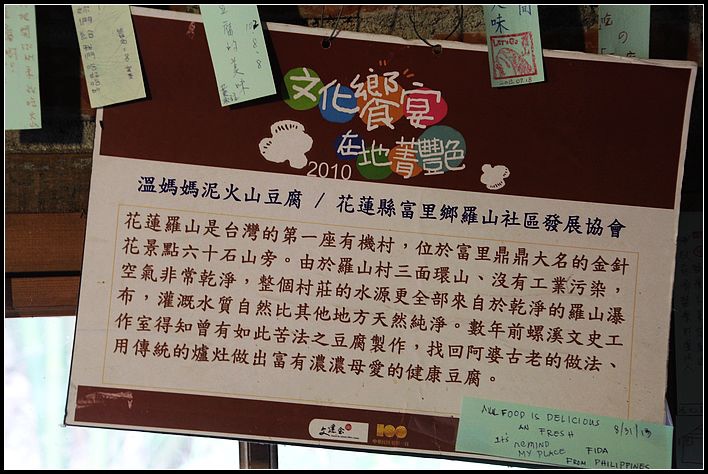 豆腐的美味
102.8.8
2012.07.13
文化饗宴
2010 在地菁艷
溫媽媽泥火山豆腐 / 花蓮縣富里鄉羅山社區發展協會
花蓮羅山是台灣的第一座有機村，位於富里鼎鼎大名的金針
花景點六十石山旁。由於羅山村三面環山、沒有工業污染，
空氣非常乾淨，整個村莊的水源更全部來自於乾淨的羅山瀑
布，灌溉水質自然比其他地方天然純淨。數年前螺溪文史工
作室得知曾有如此苦法之豆腐製作，找回阿婆古老的做法、
用傳統的爐灶做出富有濃濃母愛的健康豆腐。
文建會
100
FOOD IS DELICIOUS
AN FRESH
8/31/13
It's REMIND
MY PLACE
FIDA
FROM PHILIPPINES